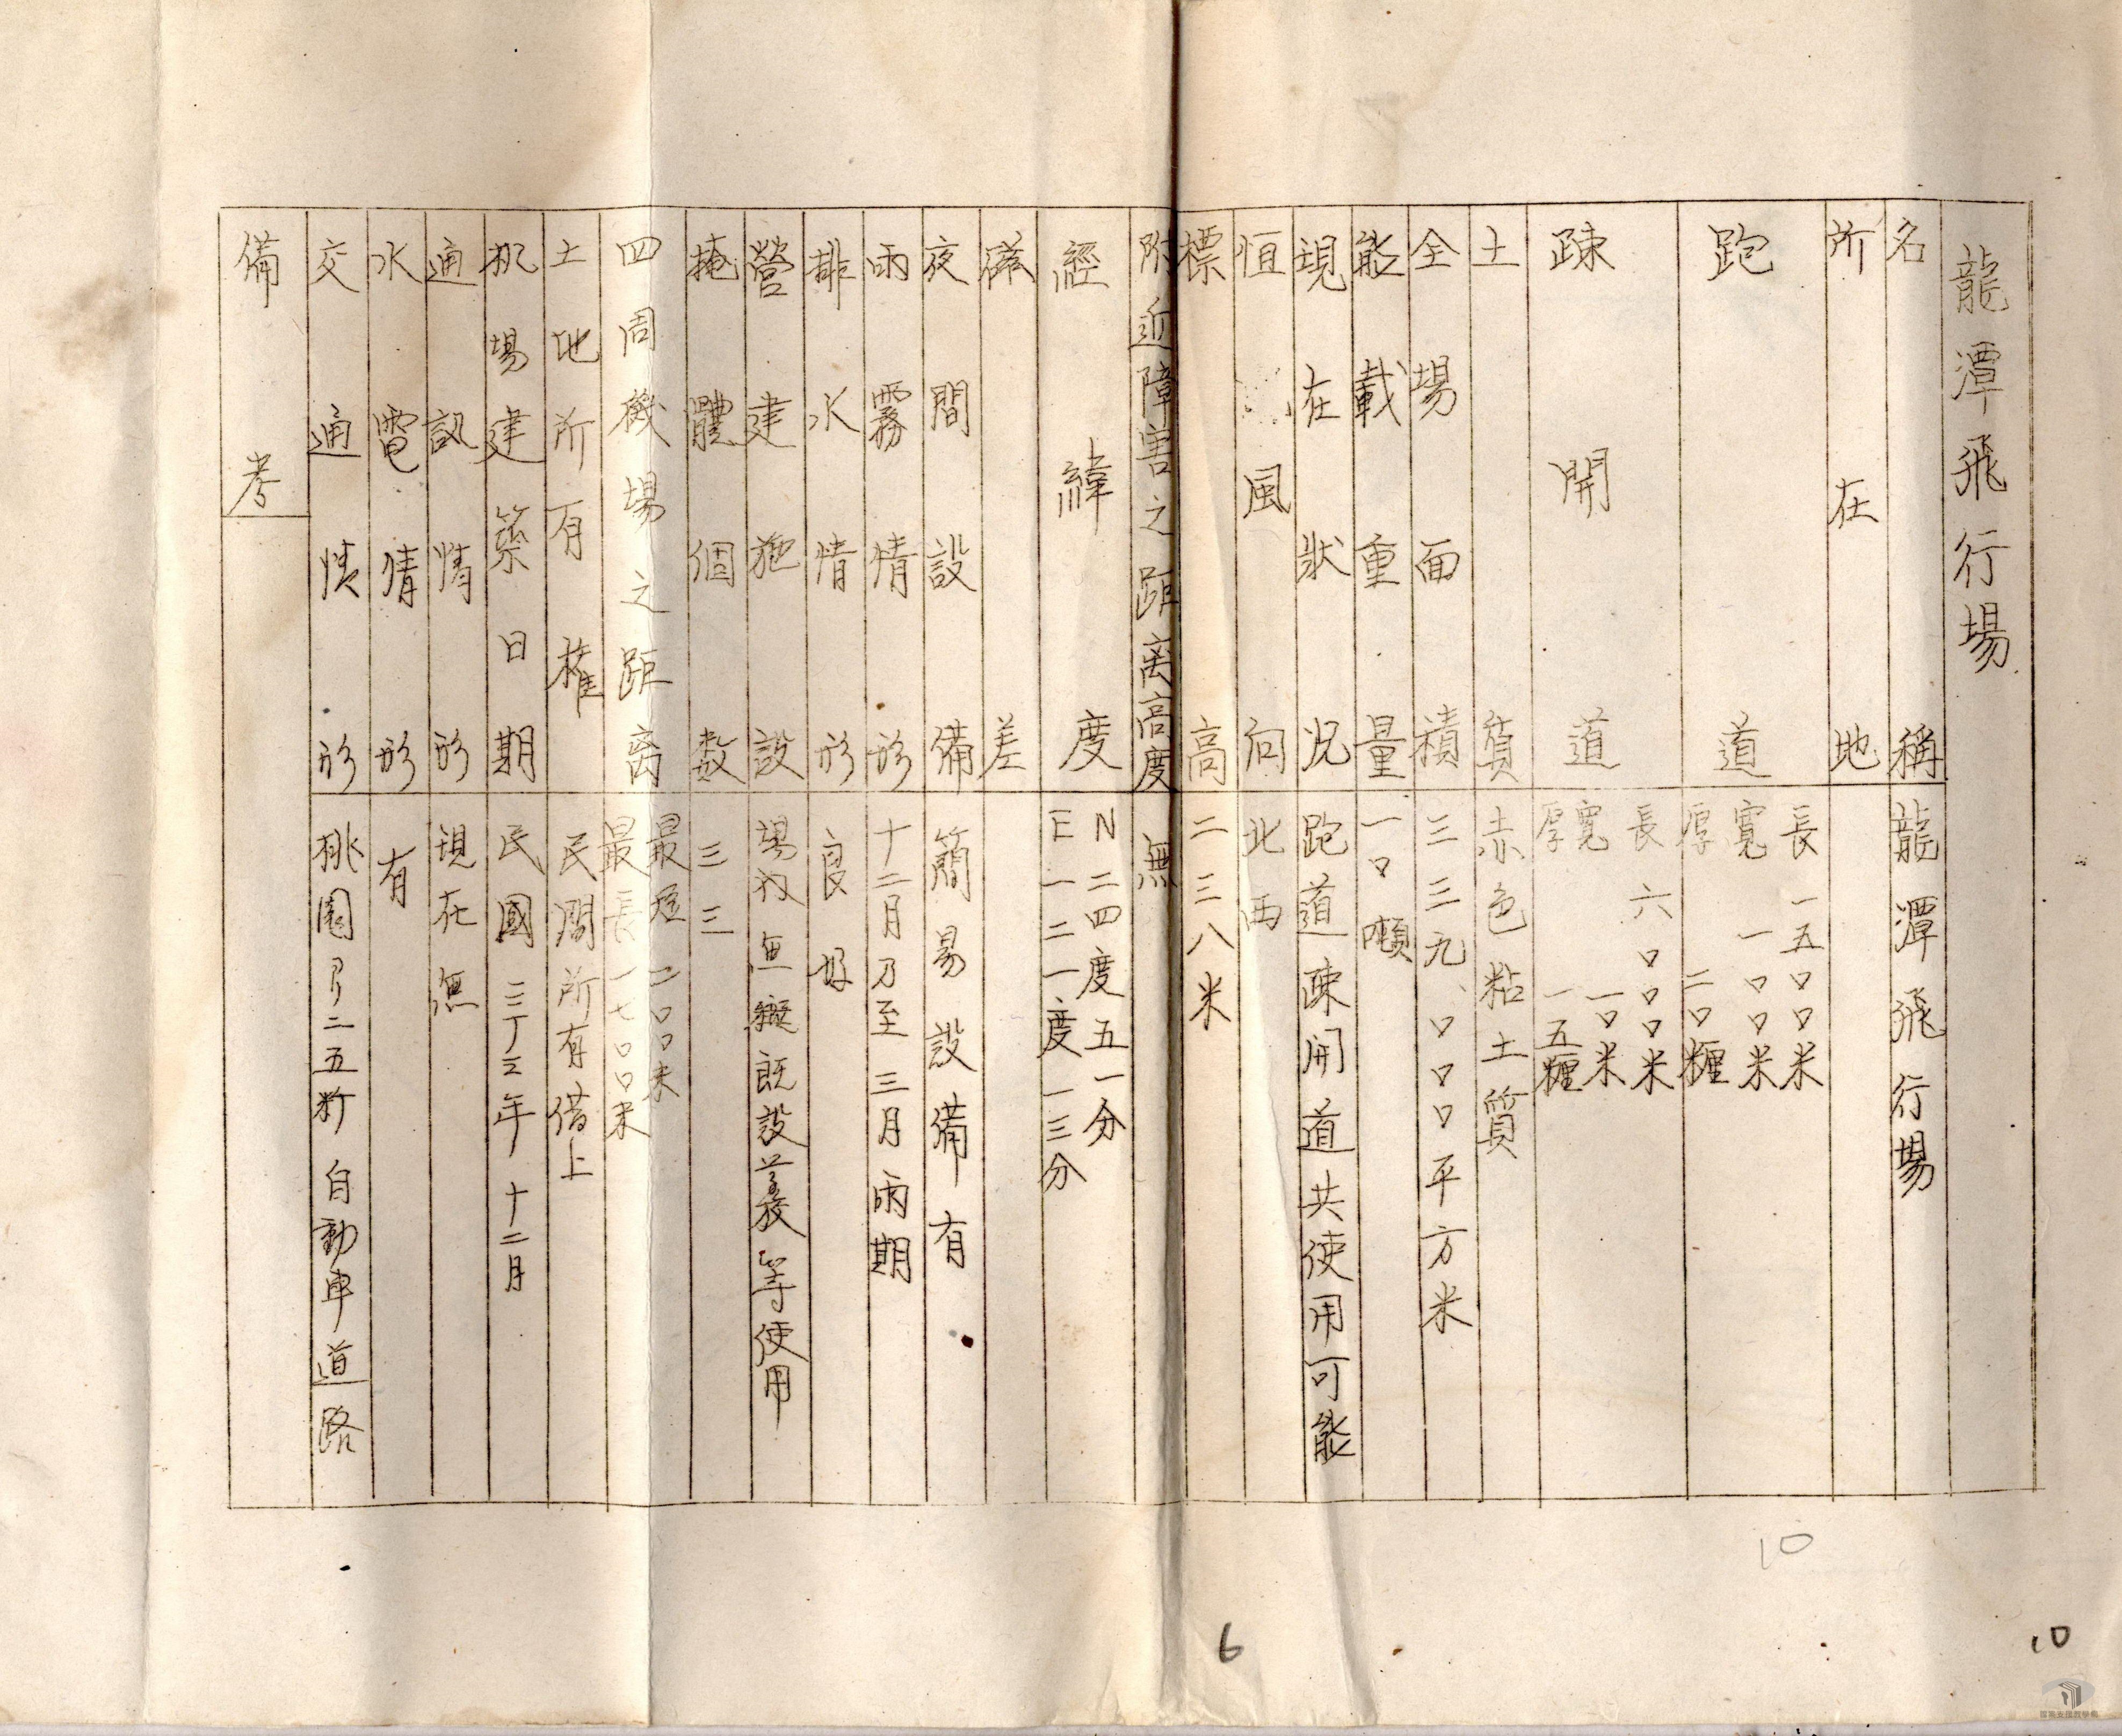 龍潭飛行場
名稱 龍潭飛行場
所在地
跑道 長 一五〇〇米
寬 一〇〇米
厚 二〇糎
疎開道 長 六〇〇〇米
寬 一〇米
厚 一五糎
土質 赤色粘土質
全場面積 三三九、〇〇〇平方米
能載重量 一〇噸
現在狀況 跑道疎開道共使用可能
恒風向 北西
標高 二三八米
附近障害之距离高度 無
經緯度 N 二四度五一分
E 一二一度一三分
落差
夜間設備 簡易設備有
雨霧情形 十二月乃至三月雨期
排水情形 良好
營建施設 場內無 既設 等使用
掩體個数 三三
四周機場之距离 最短 二〇〇米
最長 一七〇〇米
土地所有権 民間所有借上
机場建築日期 民國三丁三年十二月
通訊情形 現在無
水電情形 有
交通情形 桃園ヨリ二五粁自動車道路
備考
10
6
10